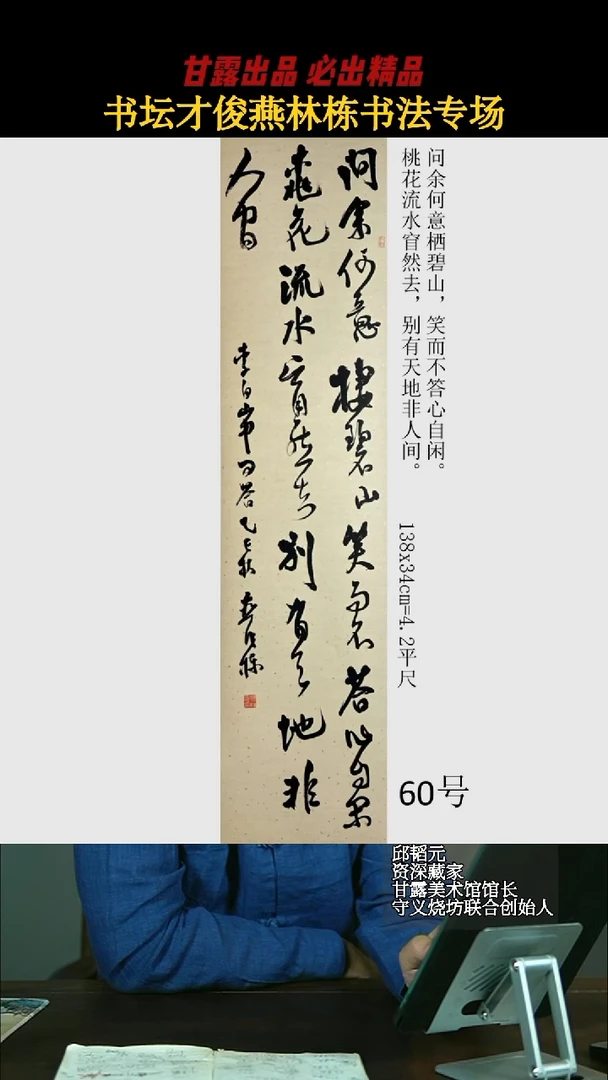 甘露出品 必出精品
书坛才俊燕林栋书法专场
问余何意栖碧山，笑而不答心自闲。
桃花流水窅然去，别有天地非人间。
138x34cm=4.2平尺
60号
問余何意栖碧山笑而不答心自閑
桃花流水窅然去别有天地非
人間
李白山中问答乙巳秋燕林栋
邱韬元
资深藏家
甘露美术馆馆长
守义烧坊联合创始人